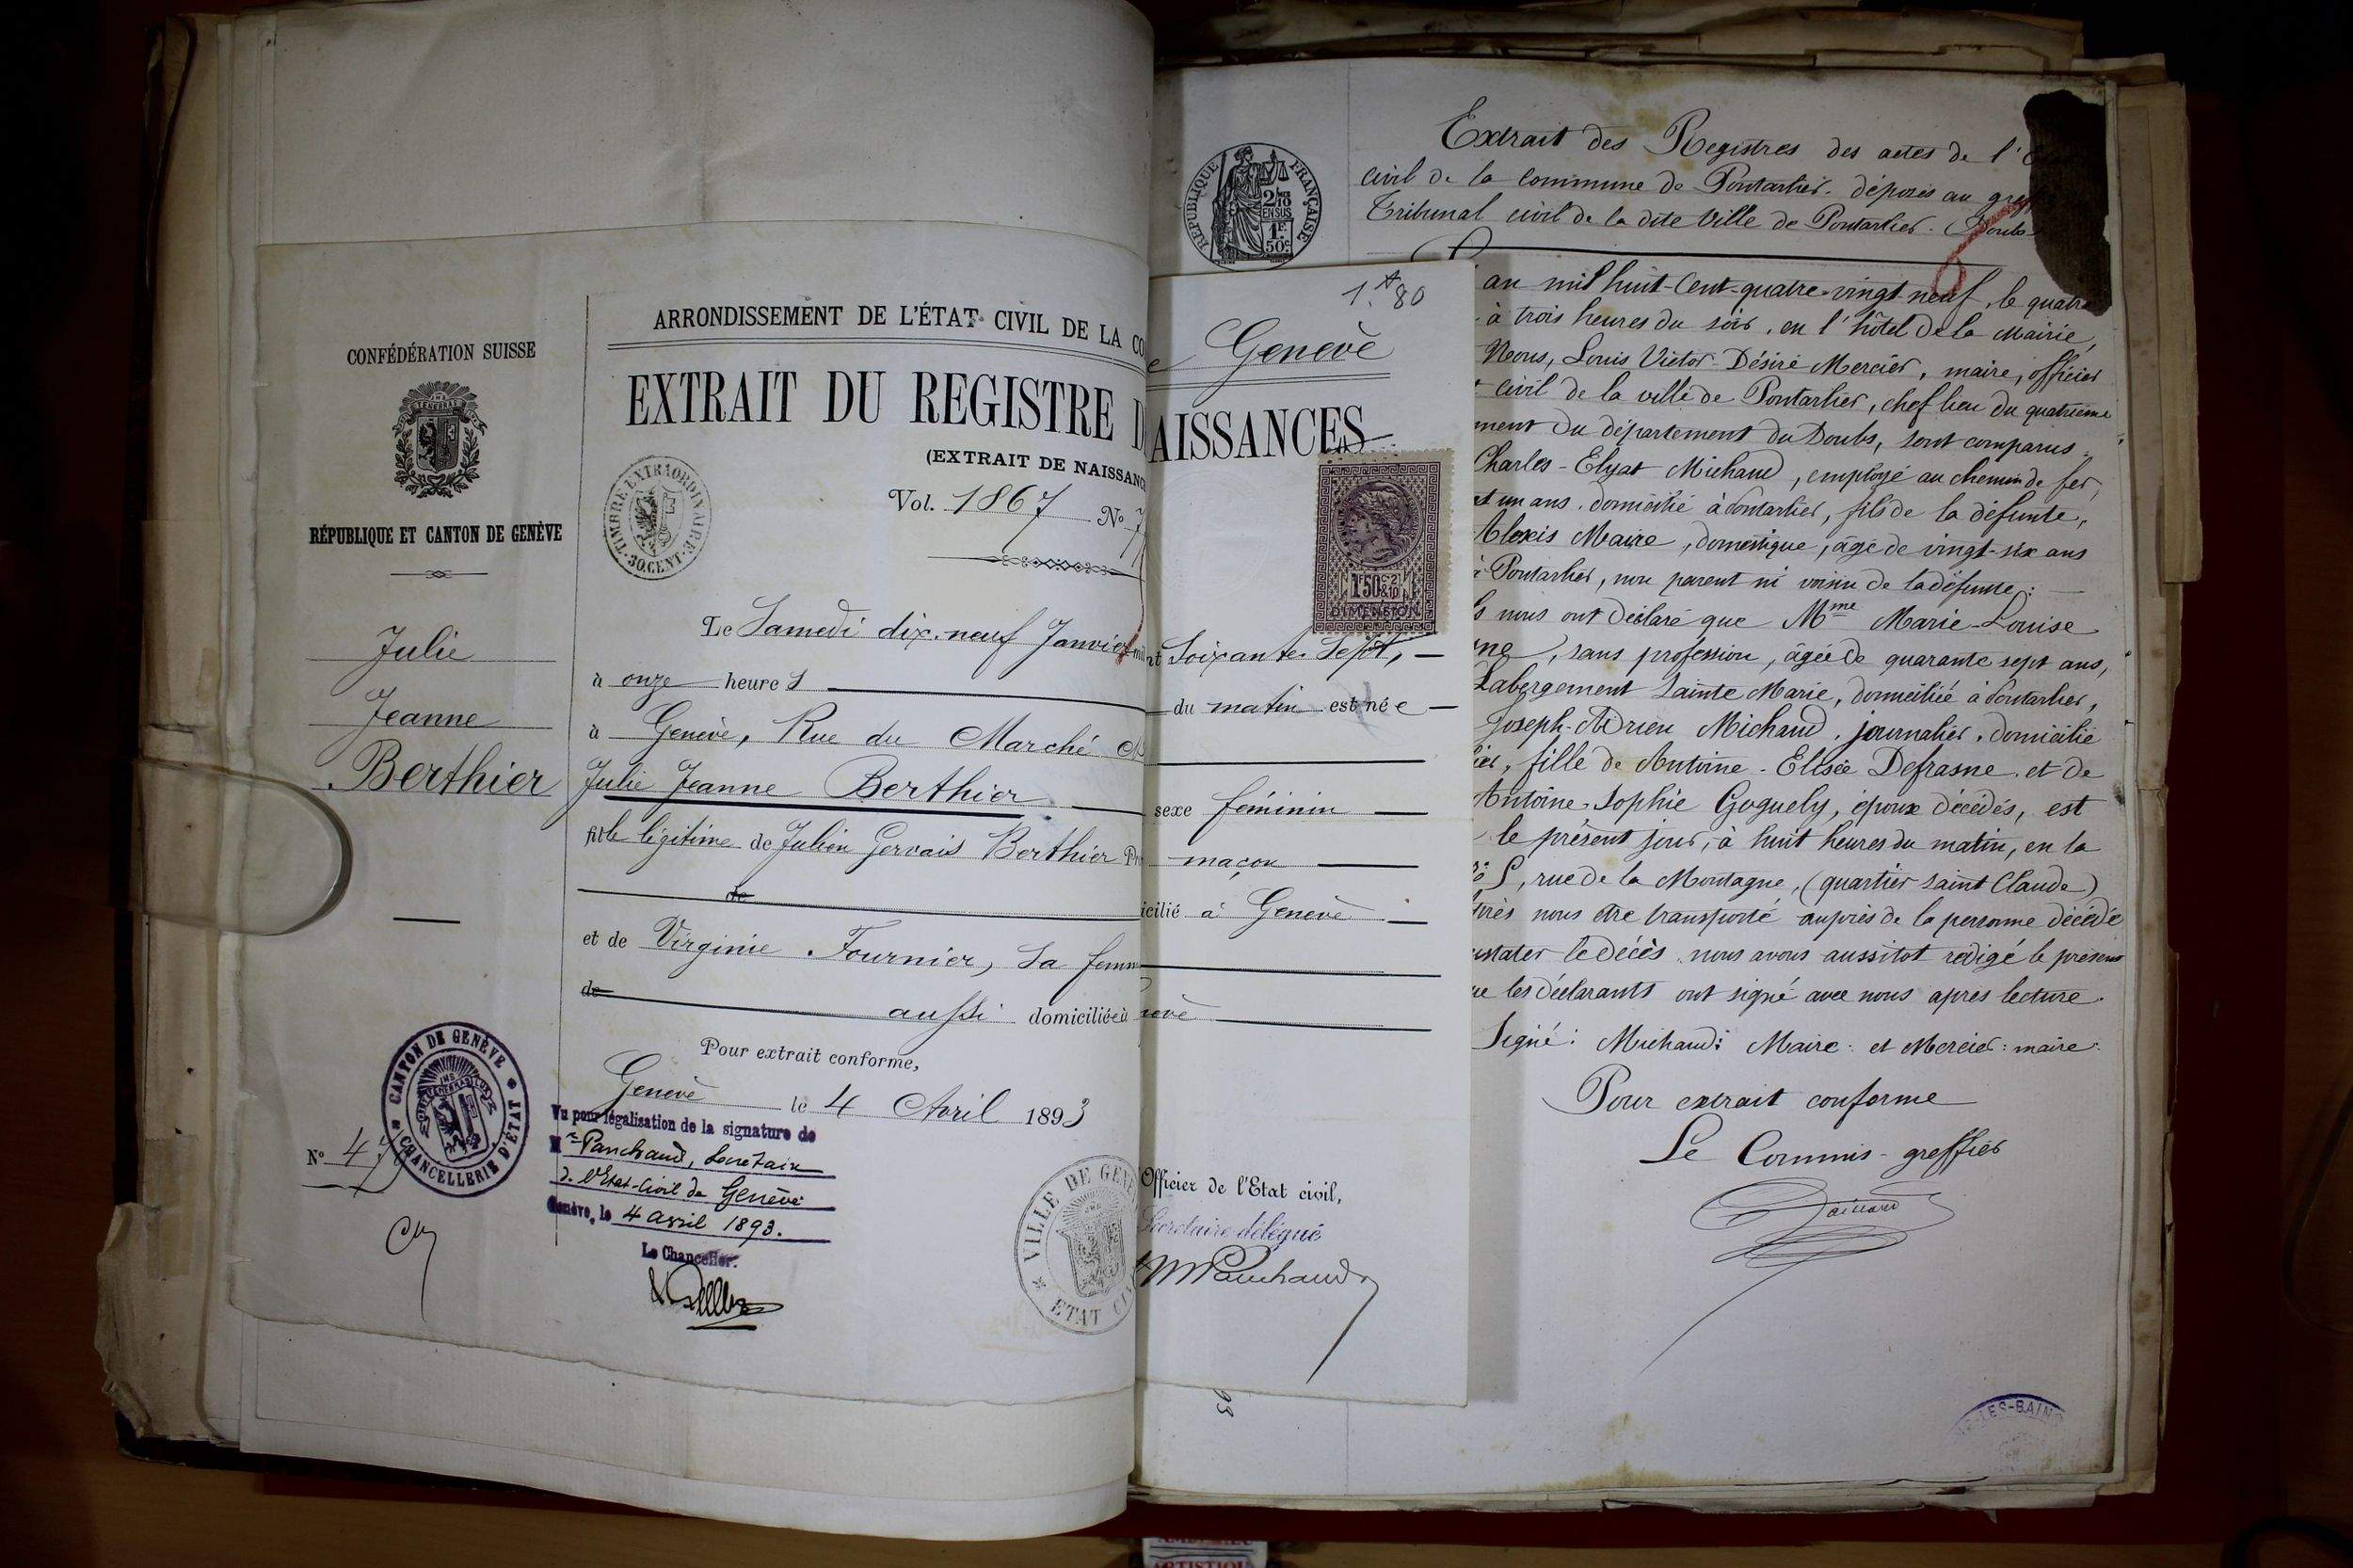 CONFÉDÉRATION SUISSE
RÉPUBLIQUE ET CANTON DE GENÈVE
Julie
Jeanne
Berthier
CANTON DE GENÈVE
CHANCELLERIE D'ÉTAT
No 47
ARRONDISSEMENT DE L'ÉTAT CIVIL DE LA CO
e Genève
1. 80
EXTRAIT DU REGISTRE D
AISSANCES
(EXTRAIT DE NAISSANC
TIMBRE EXTRAORDINAIRE
30 CENT.
Vol. 1867 No 7
1F50c 2/10
DIMENSION
Le Samedi dix-neuf Janvier mil
nt Soixante Sept, —
à onze heures
du matin est née —
à Genève, Rue du Marché
Julie Jeanne Berthier
sexe féminin
fille légitime de Julien Gervais Berthier
maçon
de
icilié à Genève
et de Virginie Fournier, sa femm
de
aussi domiciliée à
nève
Pour extrait conforme,
Genève le 4 Avril 1893
Vu pour légalisation de la signature de
Mr Panchaud, Secrétaire
d. l'Etat-Civil de Genève
Genève, le 4 avril 1893.
Le Chancelier.
VILLE DE GENÈ
ETAT CI
Officier de l'Etat civil,
Secrétaire délégué
MPanchaud
93
RÉPUBLIQUE FRANÇAISE
2/10
EN SUS
1F.
50c
Extrait des Registres des actes de l'
civil de la commune de Pontarlier. déposés au greff
Tribunal civil de la dite Ville de Pontarlier. (Doubs
an mil huit-cent-quatre-vingt-neuf, le quatre
à trois heures du soir, en l'hôtel de la Mairie,
Nous, Louis Victor-Désiré Mercier, maire, officier
civil de la ville de Pontarlier, chef lieu du quatrième
ment du département du Doubs, sont comparus :
Charles-Elyat Michaud, employé au chemin de fer,
et un ans, domicilié à Pontarlier, fils de la défunte,
Alexis Maire, domestique, âgé de vingt-six ans
à Pontarlier, non parent ni voisin de la défunte :
s nous ont déclaré que Mme Marie-Louise
ne, sans profession, âgée de quarante sept ans,
Labergement Sainte Marie, domiciliée à Pontarlier,
Joseph-Adrien Michaud, journalier, domicilié
ier, fille de Antoine-Elisée Defrasne et de
Antoine-Sophie Goguely, époux décédés, est
le présent jour, à huit heures du matin, en la
rue de la Montagne, (quartier Saint Claude)
près nous être transporté auprès de la personne décédé
nstater le décès, nous avons aussitôt rédigé le présent
ue les déclarants ont signé avec nous après lecture.
Signé : Michaud : Maire : et Mercier : maire :
Pour extrait conforme
Le Commis-greffier
LES-BAINS